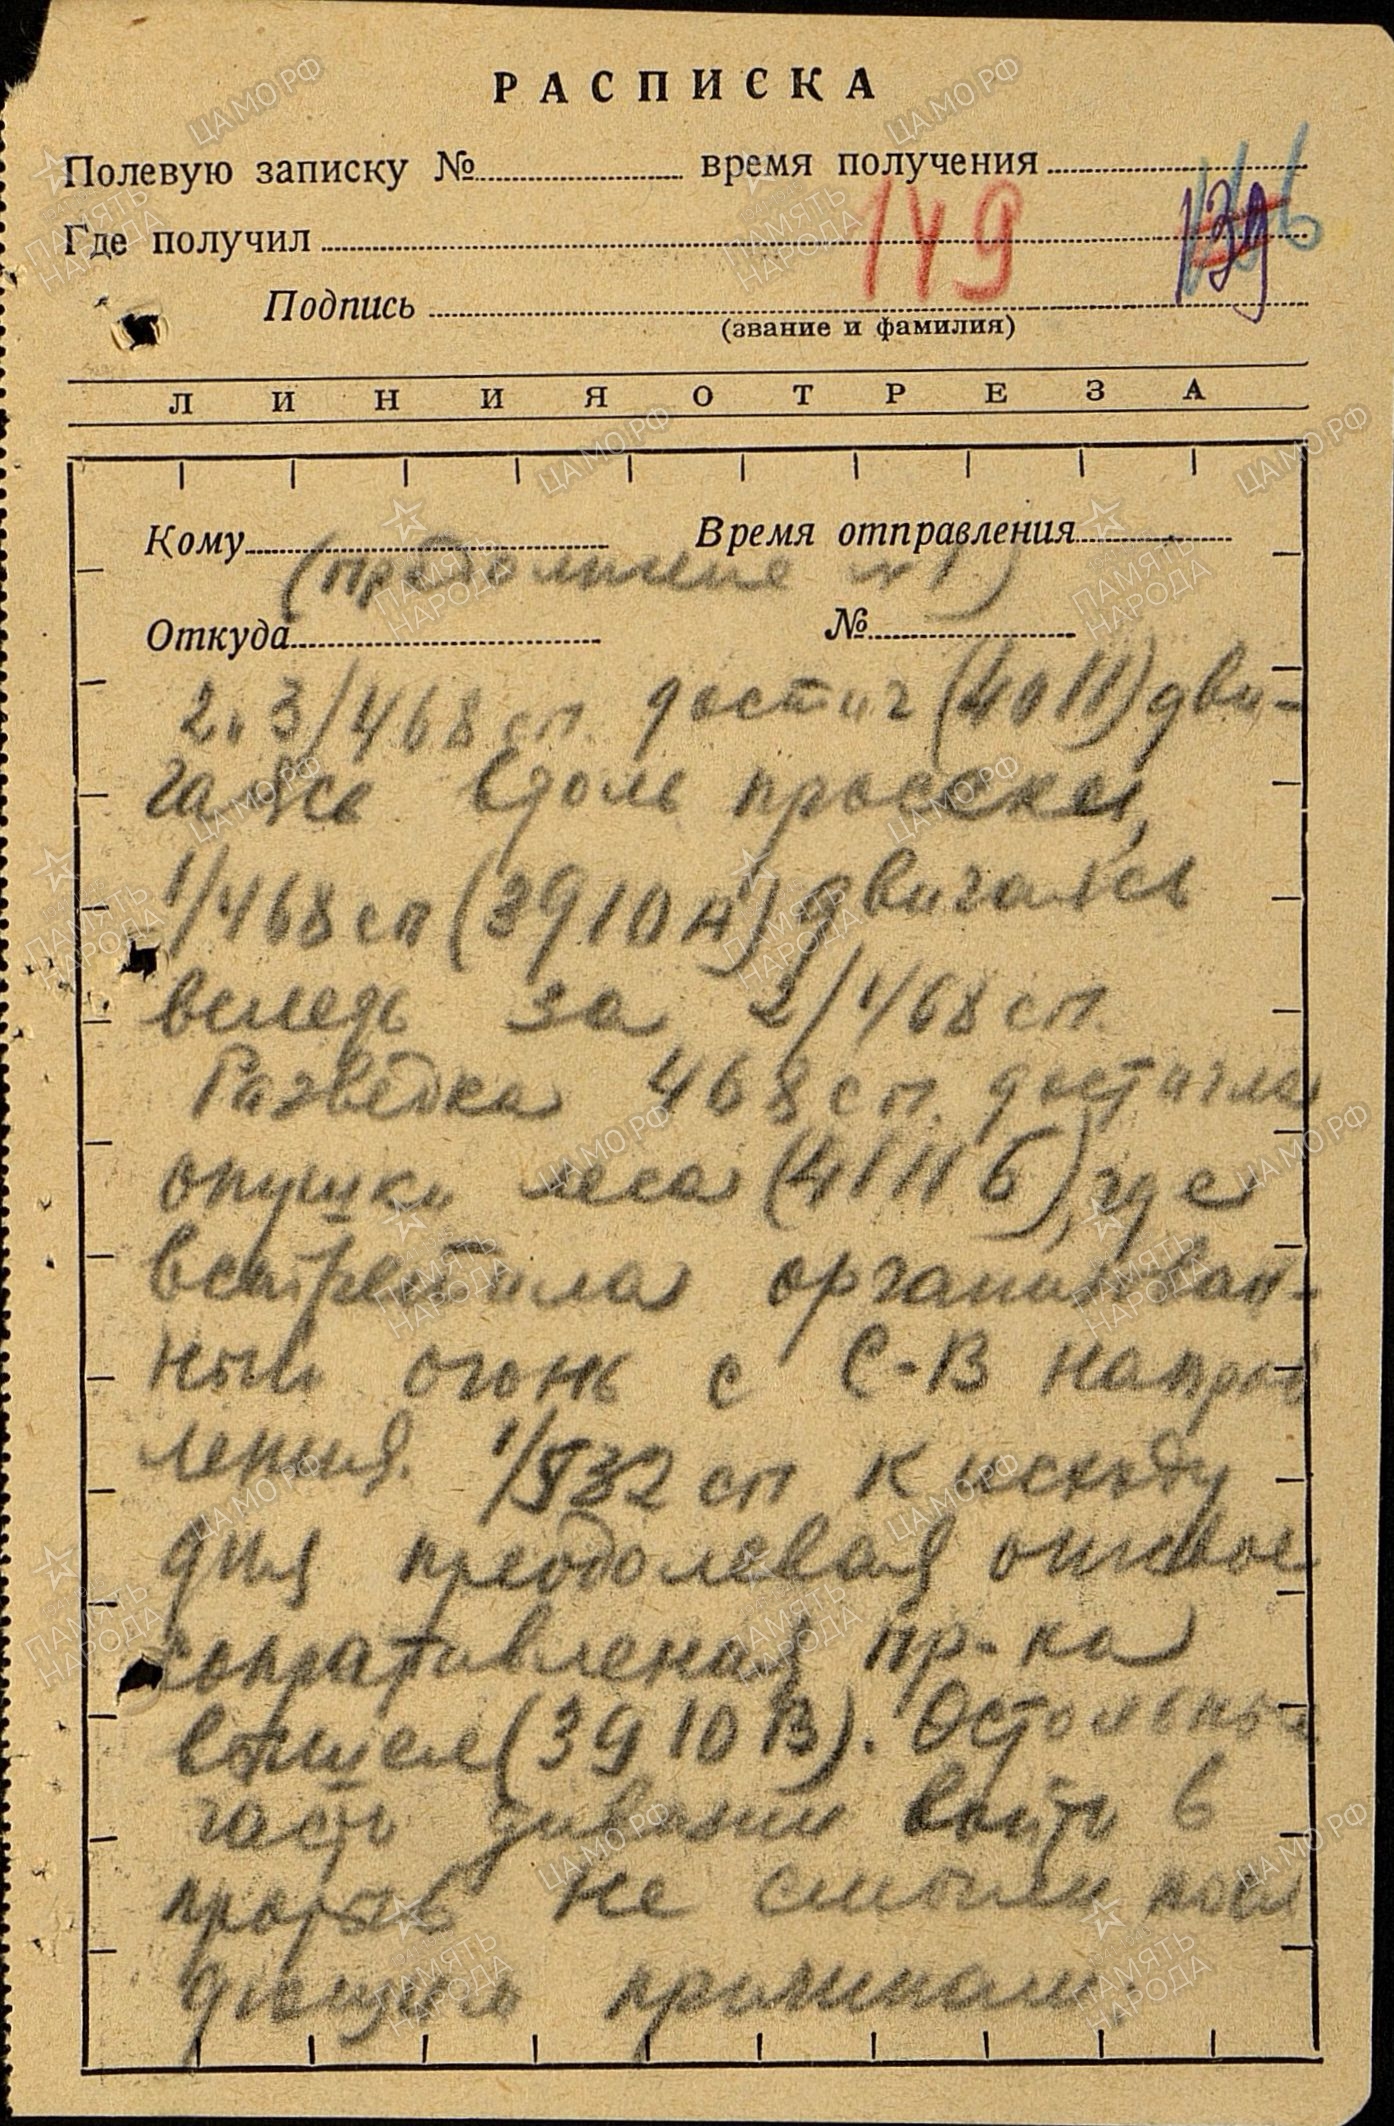 РАСПИСКА
Полевую записку № время получения
149 139 146
Где получил
Подпись
(звание и фамилия)
ЛИНИЯ ОТРЕЗА
Кому Время отправления
(продолжение №1)
Откуда №
2 и 3/468 сп. достиг (4011) дви-
гаясь вдоль просеки,
1/468 сп (3910А) двигаясь
вследъ за 2/468 сп.
Разведка 468 сп. достигла
опушки леса (4111Б), где
встретила организован-
ный огонь с С-В направ
ления. 1/532 сп к исходу
дня преодолевая огневое
сопративления пр-ка
вышел (3910В). Остольные
часть дивизии войти в
прорыв не смогли по сл
дующим причинам.